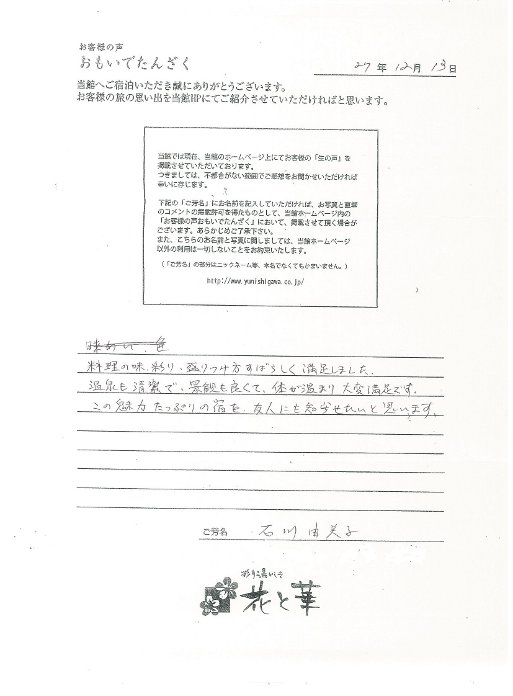 お客様の声
おもいでたんざく
27年 12月 13日
当館へご宿泊いただき誠にありがとうございます。
お客様の旅の思い出を当館HPにてご紹介させていただければと思います。
当館では現在、当館のホームページ上にてお客様の「生の声」を
掲載させていただいております。
つきましては、不都合がない範囲でご感想をお聞かせいただければ
幸いに存じます。
下記の「ご芳名」にお名前を記入していただければ、お写真と直筆
のコメントの掲載許可を得たものとして、当館ホームページ内の
「お客様の声おもいでたんざく」において、掲載させて頂く場合が
ございます。あらかじめご了承下さい。
また、こちらのお名前と写真に関しましては、当館ホームページ
以外の利用は一切しないことをお約束いたします。
(「ご芳名」の部分はニックネーム等、本名でなくてもかまいません。)
http://www.yunishigawa.co.jp/
料理の味、彩り、盛りつけ方すばらしく満足しました。
温泉も清潔で、景観も良くて、体が温まり大変満足です。
この魅力たっぷりの宿を、友人にも知らせたいと思います。
ご芳名 石川由美子
彩り湯かしき
花と華